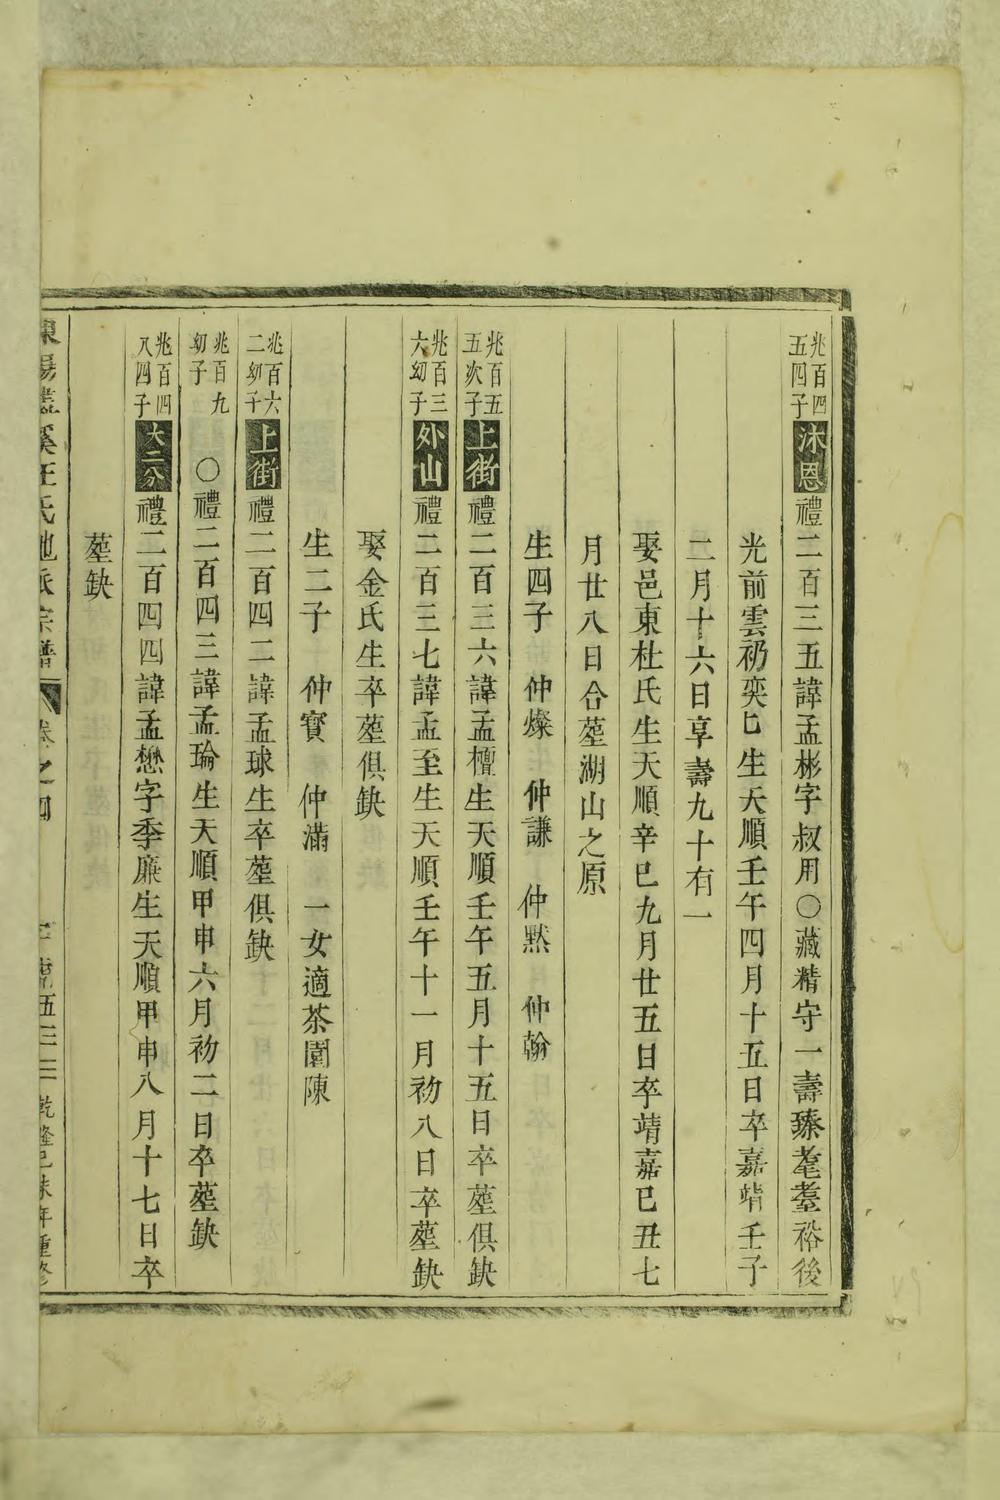 兆百四五四子沐恩禮二百三五諱孟彬字叔用○藏精守一壽臻耄耋裕後
光前雲礽奕匕生天順壬午四月十五日卒嘉靖壬子
二月十六日享壽九十有一
娶邑東杜氏生天順辛巳九月廿五日卒靖嘉已丑七
月廿八日合塟湖山之原
生四子 仲燦 仲謙 仲默 仲翰
兆百五五次子上街禮二百三六諱孟檀生天順壬午五月十五日卒塟俱缺
兆百三六幼子外山禮二百三七諱孟至生天順壬午十一月初八日卒塟缺
娶金氏生卒塟俱缺
生二子 仲寶 仲滿 一女適茶園陳
兆百六二幼子上街禮二百四二諱孟球生卒塟俱缺
兆百九幼子○禮二百四三諱孟瑜生天順甲申六月初二日卒塟缺
兆百四八四子大二分禮二百四四諱孟懋字季廉生天順甲申八月十七日卒
塟缺
溪汪氏 派宗譜 卷之四 五三二 乾隆己未年重修